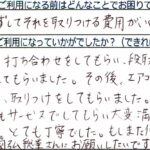 ご利用になる前はどんなことでお困りで
ずしてそれを取りつける費用がい
ご利用になっていかがでしたか？（できれ
打ち合わせをしてもらい、段取
してもらいました。その後、エアコ
、取りつけをしてもらいました。
もサービスでしてもらい大変満
とても丁寧でした。もしまた
さんにお願いしたいです